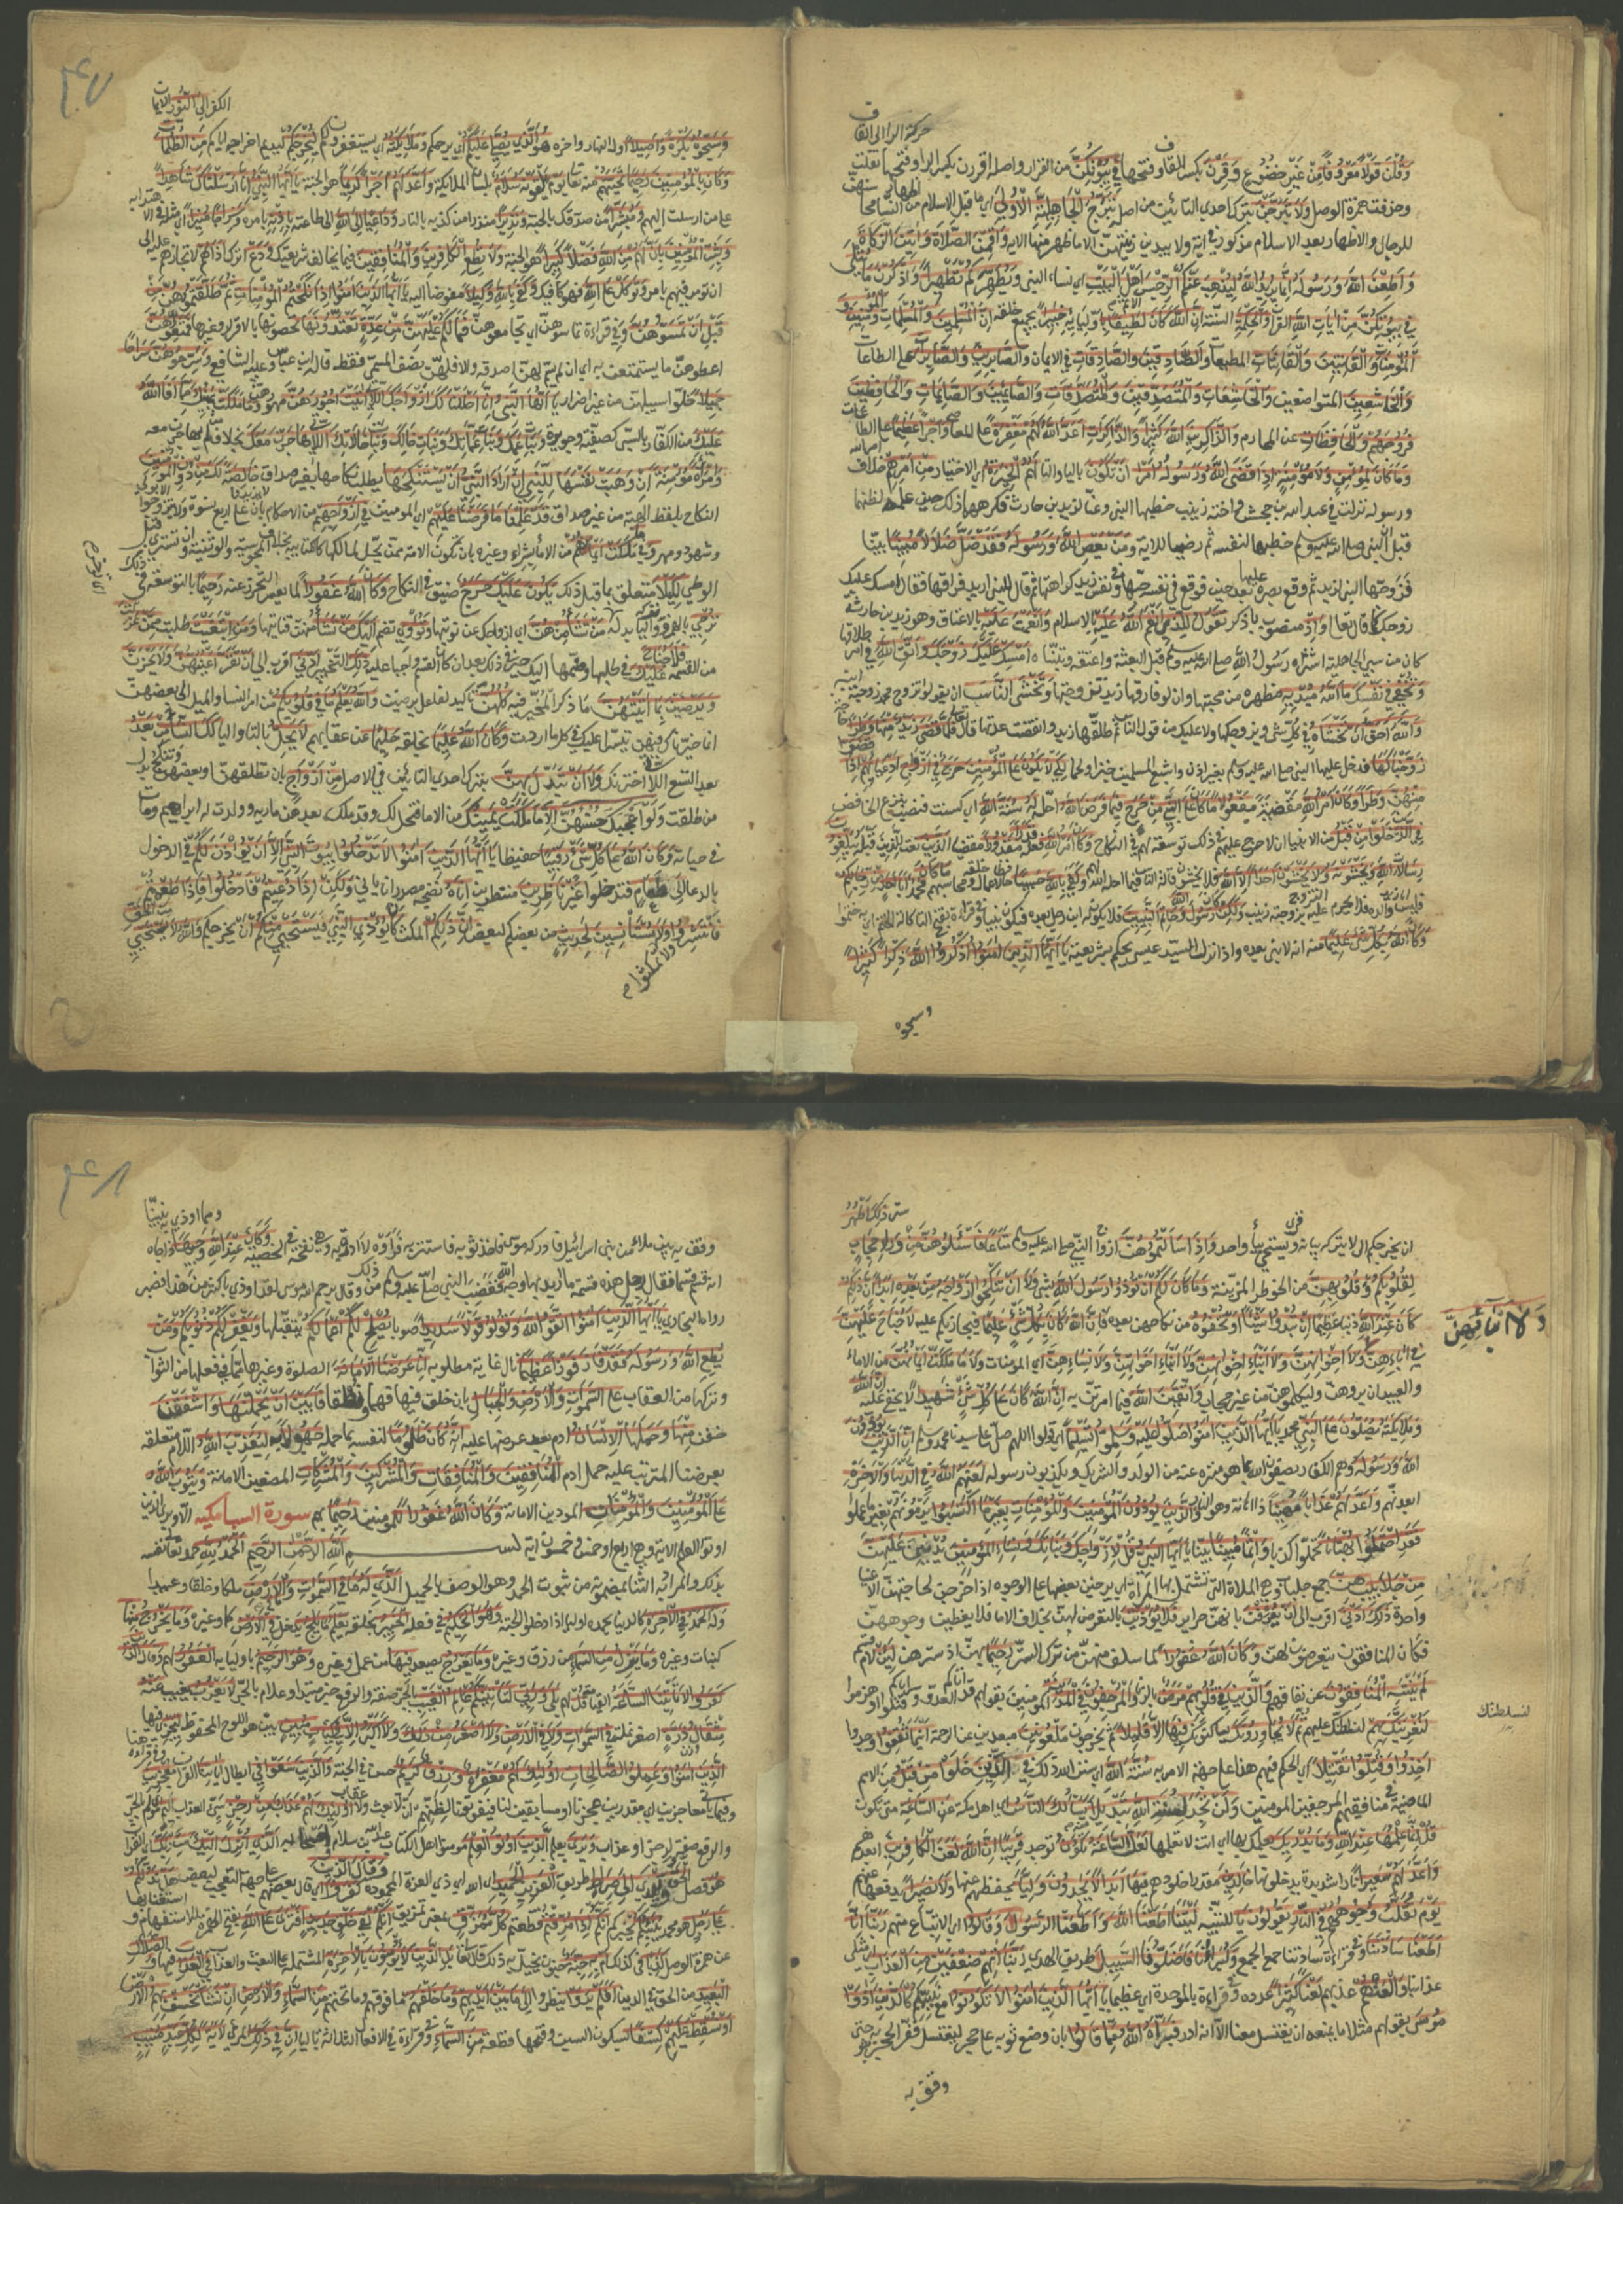 حركة الراء الى القاف
وَقُلْنَ قَوْلًا مَعْرُوفًا من غير خضوع وَقَرْنَ بكسر القاف وفتحها فِي بُيُوتِكُنَّ من القرار واصله اقررن بكسر الراء وفتحها نقلت
وحذفت همزة الوصل وَلَا تَبَرَّجْنَ بترك احدى التائين من اصله تَبَرُّجَ الْجَاهِلِيَّةِ الْأُولَى اي ما قبل الاسلام من اظهار النساء محاسنهن
للرجال والاظهار بعد الاسلام مذكور في اية ولا يبدين زينتهن الا ما ظهر منها الاية وَأَقِمْنَ الصَّلَاةَ وَآتِينَ الزَّكَاةَ
وَأَطِعْنَ اللَّهَ وَرَسُولَهُ إِنَّمَا يُرِيدُ اللَّهُ لِيُذْهِبَ عَنْكُمُ الرِّجْسَ أَهْلَ الْبَيْتِ اي نساء النبي وَيُطَهِّرَكُمْ تَطْهِيرًا وَاذْكُرْنَ مَا يُتْلَى
فِي بُيُوتِكُنَّ مِنْ آيَاتِ اللَّهِ القران وَالْحِكْمَةِ السنة إِنَّ اللَّهَ كَانَ لَطِيفًا باوليائه خَبِيرًا بجميع خلقه إِنَّ الْمُسْلِمِينَ وَالْمُسْلِمَاتِ وَالْمُؤْمِنِينَ
وَالْمُؤْمِنَاتِ وَالْقَانِتِينَ وَالْقَانِتَاتِ المطيعات وَالصَّادِقِينَ وَالصَّادِقَاتِ في الايمان وَالصَّابِرِينَ وَالصَّابِرَاتِ على الطاعات
وَالْخَاشِعِينَ المتواضعين وَالْخَاشِعَاتِ وَالْمُتَصَدِّقِينَ وَالْمُتَصَدِّقَاتِ وَالصَّائِمِينَ وَالصَّائِمَاتِ وَالْحَافِظِينَ
فُرُوجَهُمْ وَالْحَافِظَاتِ عن المحارم وَالذَّاكِرِينَ اللَّهَ كَثِيرًا وَالذَّاكِرَاتِ أَعَدَّ اللَّهُ لَهُمْ مَغْفِرَةً على المعاصي وَأَجْرًا عَظِيمًا على الطاعات
وَمَا كَانَ لِمُؤْمِنٍ وَلَا مُؤْمِنَةٍ إِذَا قَضَى اللَّهُ وَرَسُولُهُ أَمْرًا أَنْ تَكُونَ باليا والتا لَهُمُ الْخِيَرَةُ اي الاختيار مِنْ أَمْرِهِمْ خلاف امر الله
ورسوله نزلت في عبد الله بن جحش واخته زينب خطبها النبي وعنا لزيد بن حارث فكرها ذلك حين علما لظنهما
قبل ان النبي صلى الله عليه وسلم خطبها لنفسه ثم رضيا للاية وَمَنْ يَعْصِ اللَّهَ وَرَسُولَهُ فَقَدْ ضَلَّ ضَلَالًا مُبِينًا بيّنا
فزوجها النبي لزيد ثم وقع بصره عليها بعد حين فوقع في نفسه حبها وفي نفس زيد كراهتها ثم قال للنبي اريد فراقها فقال امسك عليك
زوجك كما قال تعالى وَإِذْ منصوب باذكر تَقُولُ لِلَّذِي أَنْعَمَ اللَّهُ عَلَيْهِ بالاسلام وَأَنْعَمْتَ عَلَيْهِ بالاعتاق وهو زيد بن حارثة
كان من سبي الجاهلية اشتراه رسول الله صلى الله عليه وسلم قبل البعثة واعتقه وتبناه أَمْسِكْ عَلَيْكَ زَوْجَكَ وَاتَّقِ اللَّهَ في امر طلاقها
وَتُخْفِي فِي نَفْسِكَ مَا اللَّهُ مُبْدِيهِ مظهره من محبتها وان لو فارقها زيد تزوجتها وَتَخْشَى النَّاسَ ان يقولوا تزوج محمد زوجة ابنه
وَاللَّهُ أَحَقُّ أَنْ تَخْشَاهُ في كل شي وتزوجها ولا عليك من قول الناس ثم طلقها زيد وانقضت عدتها قال تعالى فَلَمَّا قَضَى زَيْدٌ مِنْهَا وَطَرًا حاجة
زَوَّجْنَاكَهَا فدخل عليها النبي صلى الله عليه وسلم بغير اذن واشبع المسلمين خبزا ولحما لِكَيْ لَا يَكُونَ عَلَى الْمُؤْمِنِينَ حَرَجٌ فِي أَزْوَاجِ أَدْعِيَائِهِمْ إِذَا قَضَوْا
مِنْهُنَّ وَطَرًا وَكَانَ أَمْرُ اللَّهِ مقضيه مَفْعُولًا مَا كَانَ عَلَى النَّبِيِّ مِنْ حَرَجٍ فِيمَا فَرَضَ احل اللَّهُ لَهُ سُنَّةَ اللَّهِ اي كسنة فنصب بنزع الخافض
فِي الَّذِينَ خَلَوْا مِنْ قَبْلُ من الانبياء ان لا حرج عليهم في ذلك توسعة لهم في النكاح وَكَانَ أَمْرُ اللَّهِ فعله قَدَرًا مَقْدُورًا مقضيا الَّذِينَ نعت للذين قبله يُبَلِّغُونَ
رِسَالَاتِ اللَّهِ وَيَخْشَوْنَهُ وَلَا يَخْشَوْنَ أَحَدًا إِلَّا اللَّهَ فلا يخشون قالة الناس فيما احل الله لهم وَكَفَى بِاللَّهِ حَسِيبًا حافظا لاعمال خلقه ومحاسبهم مَا كَانَ مُحَمَّدٌ أَبَا أَحَدٍ مِنْ رِجَالِكُمْ
فليس ابا زيد والده فلا يحرم عليه التزوج بزوجته زينب وَلَكِنْ كان رَسُولَ اللَّهِ وَخَاتَمَ النَّبِيِّينَ فلا يكون له ابن رجل بعده فيكون نبيا وفي قراءة بفتح التا كالة الختم اي به ختموا
وَكَانَ اللَّهُ بِكُلِّ شَيْءٍ عَلِيمًا منه انه لا نبي بعده واذا نزل السيد عيسى يحكم بشريعته يَا أَيُّهَا الَّذِينَ آمَنُوا اذْكُرُوا اللَّهَ ذِكْرًا كَثِيرًا
وسبحوه
٣٤٧
الكفر إِلَى النُّورِ الايمان
وَسَبِّحُوهُ بُكْرَةً وَأَصِيلًا اول النهار واخره هُوَ الَّذِي يُصَلِّي عَلَيْكُمْ اي يرحمكم وَمَلَائِكَتُهُ اي يستغفرون لكم لِيُخْرِجَكُمْ ليديم اخراجه اياكم مِنَ الظُّلُمَاتِ
وَكَانَ بِالْمُؤْمِنِينَ رَحِيمًا تَحِيَّتُهُمْ منه تعالى يَوْمَ يَلْقَوْنَهُ سَلَامٌ بلسان الملائكة وَأَعَدَّ لَهُمْ أَجْرًا كَرِيمًا هو الجنة يَا أَيُّهَا النَّبِيُّ إِنَّا أَرْسَلْنَاكَ شَاهِدًا
على من ارسلت اليهم وَمُبَشِّرًا من صدقك بالجنة وَنَذِيرًا منذرا من كذبه بالنار وَدَاعِيًا إِلَى اللَّهِ الى طاعته بِإِذْنِهِ بامره وَسِرَاجًا مُنِيرًا اي مثله في الاهتداء به
وَبَشِّرِ الْمُؤْمِنِينَ بِأَنَّ لَهُمْ مِنَ اللَّهِ فَضْلًا كَبِيرًا هو الجنة وَلَا تُطِعِ الْكَافِرِينَ وَالْمُنَافِقِينَ فيما يخالف شريعتك وَدَعْ اترك أَذَاهُمْ لا تجازهم عليه الى
ان تؤمر فيهم بامر وَتَوَكَّلْ عَلَى اللَّهِ فهو كافيك وَكَفَى بِاللَّهِ وَكِيلًا مفوضا اليه يَا أَيُّهَا الَّذِينَ آمَنُوا إِذَا نَكَحْتُمُ الْمُؤْمِنَاتِ ثُمَّ طَلَّقْتُمُوهُنَّ مِنْ
قَبْلِ أَنْ تَمَسُّوهُنَّ وفي قراءة تماسوهن اي تجامعوهن فَمَا لَكُمْ عَلَيْهِنَّ مِنْ عِدَّةٍ تَعْتَدُّونَهَا تحصونها بالاقراء وغيرها فَمَتِّعُوهُنَّ
اعطوهن ما يستمتعن به اي ان لم يسم لهن اصدقة والا فلهن نصف المسمى فقط قاله ابن عباس وعليه الشافعي وَسَرِّحُوهُنَّ سَرَاحًا
جَمِيلًا خلوا سبيلهن من غير اضرار يَا أَيُّهَا النَّبِيُّ إِنَّا أَحْلَلْنَا لَكَ أَزْوَاجَكَ اللَّاتِي آتَيْتَ أُجُورَهُنَّ مهورهن وَمَا مَلَكَتْ يَمِينُكَ مِمَّا أَفَاءَ اللَّهُ
عَلَيْكَ من الكفار بالسبي كصفية وجويرية وَبَنَاتِ عَمِّكَ وَبَنَاتِ عَمَّاتِكَ وَبَنَاتِ خَالِكَ وَبَنَاتِ خَالَاتِكَ اللَّاتِي هَاجَرْنَ مَعَكَ بخلاف من لم يهاجرن معه
وَامْرَأَةً مُؤْمِنَةً إِنْ وَهَبَتْ نَفْسَهَا لِلنَّبِيِّ إِنْ أَرَادَ النَّبِيُّ أَنْ يَسْتَنْكِحَهَا يطلب نكاحها بغير صداق خَالِصَةً لَكَ مِنْ دُونِ الْمُؤْمِنِينَ
النكاح بلفظ الهبة من غير صداق قَدْ عَلِمْنَا مَا فَرَضْنَا عَلَيْهِمْ اي المومنين فِي أَزْوَاجِهِمْ من الاحكام بان لا يزيدوا على اربع نسوة ولا يتزوجوا الا بولي
وشهود ومهر وَفي مَا مَلَكَتْ أَيْمَانُهُمْ من الاماء بشراء وغيره بان تكون الامة ممن تحل لمالكها كالكتابية بخلاف المجوسية والوثنية وان تستبرئ قبل
الوطي لِكَيْلَا متعلق بما قبل ذلك يَكُونَ عَلَيْكَ حَرَجٌ ضيق في النكاح وَكَانَ اللَّهُ غَفُورًا لما يعسر التحرز عنه رَحِيمًا بالتوسعة في ذلك
تُرْجِي بالهمزة واليا بدله تؤخر مَنْ تَشَاءُ مِنْهُنَّ اي ازواجك عن نوبتها وَتُؤْوِي تضم إِلَيْكَ مَنْ تَشَاءُ منهن فتاتيها وَمَنِ ابْتَغَيْتَ طلبت مِمَّنْ عَزَلْتَ
من القسمة فَلَا جُنَاحَ عَلَيْكَ في طلبها وضمها اليك خير في ذلك بعد ان كان القسم واجبا عليه ذَلِكَ التخيير أَدْنَى اقرب الى أَنْ تَقَرَّ أَعْيُنُهُنَّ وَلَا يَحْزَنَّ
وَيَرْضَيْنَ بِمَا آتَيْتَهُنَّ ما ذكر المخير فيه كُلُّهُنَّ تاكيد لفاعل يرضين وَاللَّهُ يَعْلَمُ مَا فِي قُلُوبِكُمْ من امر النسا والميل الى بعضهن
انما خيرناك فيهن تيسيرا عليك في كل ما اردت وَكَانَ اللَّهُ عَلِيمًا بخلقه حَلِيمًا عن عقابهم لَا يَحِلُّ بالتا واليا لَكَ النِّسَاءُ مِنْ بَعْدُ
بعد التسع اللاتي اخترنك وَلَا أَنْ تَبَدَّلَ بِهِنَّ بترك احدى التائين في الاصل مِنْ أَزْوَاجٍ بان تطلقهن او بعضهن وتنكح بدل
من طلقت وَلَوْ أَعْجَبَكَ حُسْنُهُنَّ إِلَّا مَا مَلَكَتْ يَمِينُكَ من الاماء فتحل لك وقد ملك بعدهن مارية وولدت له ابراهيم ومات
في حياته وَكَانَ اللَّهُ عَلَى كُلِّ شَيْءٍ رَقِيبًا حفيظا يَا أَيُّهَا الَّذِينَ آمَنُوا لَا تَدْخُلُوا بُيُوتَ النَّبِيِّ إِلَّا أَنْ يُؤْذَنَ لَكُمْ في الدخول
بالدعا إِلَى طَعَامٍ فتدخلوا غَيْرَ نَاظِرِينَ منتظرين إِنَاهُ نضجه مصدر انى ياني وَلَكِنْ إِذَا دُعِيتُمْ فَادْخُلُوا فَإِذَا طَعِمْتُمْ
فَانْتَشِرُوا وَلَا تمكثوا مُسْتَأْنِسِينَ لِحَدِيثٍ من بعضكم لبعض إِنَّ ذَلِكُمْ المكث كَانَ يُؤْذِي النَّبِيَّ فَيَسْتَحْيِي مِنْكُمْ ان يخرجكم وَاللَّهُ لَا يَسْتَحْيِي مِنَ الْحَقِّ
ستر ذَلِكُمْ أَطْهَرُ
ان يخرجكم اي لا يترك بيانه وقرئ يستحي بياء واحدة وَإِذَا سَأَلْتُمُوهُنَّ ازواج النبي صلى الله عليه وسلم مَتَاعًا فَاسْأَلُوهُنَّ مِنْ وَرَاءِ حِجَابٍ
لِقُلُوبِكُمْ وَقُلُوبِهِنَّ من الخواطر المريبة وَمَا كَانَ لَكُمْ أَنْ تُؤْذُوا رَسُولَ اللَّهِ بشي وَلَا أَنْ تَنْكِحُوا أَزْوَاجَهُ مِنْ بَعْدِهِ أَبَدًا إِنَّ ذَلِكُمْ
كَانَ عِنْدَ اللَّهِ ذنبا عَظِيمًا إِنْ تُبْدُوا شَيْئًا أَوْ تُخْفُوهُ من نكاحهن بعده فَإِنَّ اللَّهَ كَانَ بِكُلِّ شَيْءٍ عَلِيمًا فيجازيكم عليه لَا جُنَاحَ عَلَيْهِنَّ
وَلَا أَبْنَائِهِنَّ
فِي آبَائِهِنَّ وَلَا إِخْوَانِهِنَّ وَلَا أَبْنَاءِ إِخْوَانِهِنَّ وَلَا أَبْنَاءِ أَخَوَاتِهِنَّ وَلَا نِسَائِهِنَّ اي المومنات وَلَا مَا مَلَكَتْ أَيْمَانُهُنَّ من الاماء
والعبيد ان يروهن ويكلموهن من غير حجاب وَاتَّقِينَ اللَّهَ فيما امرتن به إِنَّ اللَّهَ كَانَ عَلَى كُلِّ شَيْءٍ شَهِيدًا لا يخفى عليه إِنَّ اللَّهَ
وَمَلَائِكَتَهُ يُصَلُّونَ عَلَى النَّبِيِّ محمد يَا أَيُّهَا الَّذِينَ آمَنُوا صَلُّوا عَلَيْهِ وَسَلِّمُوا تَسْلِيمًا اي قولوا اللهم صل على سيدنا محمد وسلم إِنَّ الَّذِينَ يُؤْذُونَ
اللَّهَ وَرَسُولَهُ وهم الكفار يصفون الله بما هو منزه عنه من الولد والشريك ويكذبون رسوله لَعَنَهُمُ اللَّهُ فِي الدُّنْيَا وَالْآخِرَةِ
ابعدهم وَأَعَدَّ لَهُمْ عَذَابًا مُهِينًا ذا اهانة وهو النار وَالَّذِينَ يُؤْذُونَ الْمُؤْمِنِينَ وَالْمُؤْمِنَاتِ بِغَيْرِ مَا اكْتَسَبُوا يرمونهم بغير ما عملوا
فَقَدِ احْتَمَلُوا بُهْتَانًا تحملوا كذبا وَإِثْمًا مُبِينًا بيّنا يَا أَيُّهَا النَّبِيُّ قُلْ لِأَزْوَاجِكَ وَبَنَاتِكَ وَنِسَاءِ الْمُؤْمِنِينَ يُدْنِينَ عَلَيْهِنَّ
مِنْ جَلَابِيبِهِنَّ جمع جلباب وهي الملاة التي تشتمل بها المراة اي يرخين بعضها على الوجوه اذا خرجن لحاجتهن الا عينا
واحدة ذَلِكَ أَدْنَى اقرب الى أَنْ يُعْرَفْنَ بانهن حراير فَلَا يُؤْذَيْنَ بالتعرض لهن بخلاف الاماء فلا يغطين وجوههن
فكان المنافقون يتعرضون لهن وَكَانَ اللَّهُ غَفُورًا لما سلف منهن من ترك الستر رَحِيمًا بهن اذ سترهن لَئِنْ لام قسم
لَمْ يَنْتَهِ الْمُنَافِقُونَ عن نفاقهم وَالَّذِينَ فِي قُلُوبِهِمْ مَرَضٌ بالزنا وَالْمُرْجِفُونَ فِي الْمَدِينَةِ المومنين بقولهم قد اتاكم العدو وسراياكم قتلوا او هزموا
لَنُغْرِيَنَّكَ بِهِمْ لنسلطنك عليهم ثُمَّ لَا يُجَاوِرُونَكَ يساكنونك فِيهَا إِلَّا قَلِيلًا ثم يخرجون مَلْعُونِينَ مبعدين عن الرحمة أَيْنَمَا ثُقِفُوا وجدوا
لنسلطنك
أُخِذُوا وَقُتِّلُوا تَقْتِيلًا اي الحكم فيهم هذا على جهة الامر به سُنَّةَ اللَّهِ اي سن الله ذلك فِي الَّذِينَ خَلَوْا مِنْ قَبْلُ من الامم
الماضية في منافقيهم المرجفين المومنين وَلَنْ تَجِدَ لِسُنَّةِ اللَّهِ تَبْدِيلًا يَسْأَلُكَ النَّاسُ اي اهل مكة عَنِ السَّاعَةِ متى تكون
قُلْ إِنَّمَا عِلْمُهَا عِنْدَ اللَّهِ وَمَا يُدْرِيكَ يعلمك بها اي انت لا تعلمها لَعَلَّ السَّاعَةَ تَكُونُ توجد قَرِيبًا إِنَّ اللَّهَ لَعَنَ الْكَافِرِينَ ابعدهم
وَأَعَدَّ لَهُمْ سَعِيرًا نارا شديدة يدخلونها خَالِدِينَ مقدرا خلودهم فِيهَا أَبَدًا لَا يَجِدُونَ وَلِيًّا يحفظهم عنها وَلَا نَصِيرًا يدفعها عنهم
يَوْمَ تُقَلَّبُ وُجُوهُهُمْ فِي النَّارِ يَقُولُونَ يَا للتنبيه لَيْتَنَا أَطَعْنَا اللَّهَ وَأَطَعْنَا الرَّسُولَا وَقَالُوا اي الاتباع منهم رَبَّنَا إِنَّا
أَطَعْنَا سَادَتَنَا وفي قراءة ساداتنا جمع الجمع وَكُبَرَاءَنَا فَأَضَلُّونَا السَّبِيلَا طريق الهدى رَبَّنَا آتِهِمْ ضِعْفَيْنِ مِنَ الْعَذَابِ اي مثلي
عذابنا وَالْعَنْهُمْ عذبهم لَعْنًا كَثِيرًا عدده وفي قراءة بالموحدة اي عظيما يَا أَيُّهَا الَّذِينَ آمَنُوا لَا تَكُونُوا مع نبيكم كَالَّذِينَ آذَوْا
مُوسَى بقولهم مثلا ما يمنعه ان يغتسل معنا الا انه ادر فَبَرَّأَهُ اللَّهُ مِمَّا قَالُوا بان وضع ثوبه على حجر ليغتسل ففر الحجر به حتى
وقف به
٣٤٨
ومما اوذي به نبينا
وقف به بين ملا من بني اسرائيل فادركه موسى فاخذ ثوبه فاستتر به فراوه لا ادرة به وهي نفخة في الخصية وَكَانَ عِنْدَ اللَّهِ وَجِيهًا ذا جاه
انه قسم قسما فقال رجل هذه قسمة ما اريد بها وجه الله فغضب النبي صلى الله عليه وسلم من ذلك وقال يرحم الله موسى لقد اوذي باكثر من هذا فصبر
رواه البخاري يَا أَيُّهَا الَّذِينَ آمَنُوا اتَّقُوا اللَّهَ وَقُولُوا قَوْلًا سَدِيدًا صوابا يُصْلِحْ لَكُمْ أَعْمَالَكُمْ يتقبلها وَيَغْفِرْ لَكُمْ ذُنُوبَكُمْ وَمَنْ
يُطِعِ اللَّهَ وَرَسُولَهُ فَقَدْ فَازَ فَوْزًا عَظِيمًا نال غاية مطلوبه إِنَّا عَرَضْنَا الْأَمَانَةَ الصلوة وغيرها مما في فعلها من الثواب
وتركها من العقاب عَلَى السَّمَوَاتِ وَالْأَرْضِ وَالْجِبَالِ بان خلق فيها فهما ونطقا فَأَبَيْنَ أَنْ يَحْمِلْنَهَا وَأَشْفَقْنَ
خفن مِنْهَا وَحَمَلَهَا الْإِنْسَانُ ادم بعد عرضها عليه إِنَّهُ كَانَ ظَلُومًا لنفسه بما حمله جَهُولًا به لِيُعَذِّبَ اللَّهُ اللام متعلقة
بعرضنا المترتب عليه حمل ادم الْمُنَافِقِينَ وَالْمُنَافِقَاتِ وَالْمُشْرِكِينَ وَالْمُشْرِكَاتِ المضيعين الامانة وَيَتُوبَ اللَّهُ
عَلَى الْمُؤْمِنِينَ وَالْمُؤْمِنَاتِ المودين الامانة وَكَانَ اللَّهُ غَفُورًا للمومنين رَحِيمًا بهم سورة السبا مكية الا ويرى الذين
اوتوا العلم الاية وهي اربع او خمس وخمسون اية بسم اللَّهِ الرَّحْمَنِ الرَّحِيمِ الْحَمْدُ لِلَّهِ حمد تعالى نفسه
بذلك والمراد به الثنا بمضمونه من ثبوت الحمد وهو الوصف بالجميل الَّذِي لَهُ مَا فِي السَّمَوَاتِ وَمَا فِي الْأَرْضِ ملكا وخلقا وعبيدا
وَلَهُ الْحَمْدُ فِي الْآخِرَةِ كالدنيا يحمده اولياءه اذا دخلوا الجنة وَهُوَ الْحَكِيمُ في فعله الْخَبِيرُ بخلقه يَعْلَمُ مَا يَلِجُ يدخل فِي الْأَرْضِ كماء وغيره وَمَا يَخْرُجُ مِنْهَا
كنبات وغيره وَمَا يَنْزِلُ مِنَ السَّمَاءِ من رزق وغيره وَمَا يَعْرُجُ يصعد فِيهَا من عمل وغيره وَهُوَ الرَّحِيمُ باوليائه الْغَفُورُ لهم وَقَالَ الَّذِينَ
كَفَرُوا لَا تَأْتِينَا السَّاعَةُ القيامة قُلْ لهم بَلَى وَرَبِّي لَتَأْتِيَنَّكُمْ عَالِمِ الْغَيْبِ بالجر صفة والرفع خبر مبتدا وعلام بالجر لَا يَعْزُبُ يغيب عَنْهُ
مِثْقَالُ وزن ذَرَّةٍ اصغر نملة فِي السَّمَوَاتِ وَلَا فِي الْأَرْضِ وَلَا أَصْغَرُ مِنْ ذَلِكَ وَلَا أَكْبَرُ إِلَّا فِي كِتَابٍ مُبِينٍ بين هو اللوح المحفوظ لِيَجْزِيَ فيها
الَّذِينَ آمَنُوا وَعَمِلُوا الصَّالِحَاتِ أُولَئِكَ لَهُمْ مَغْفِرَةٌ وَرِزْقٌ كَرِيمٌ حسن في الجنة وَالَّذِينَ سَعَوْا فِي ابطال آيَاتِنَا القران معجزين وفي قراءة هنا
وفيما ياتي معاجزين اي مقدرين عجزنا او مسابقين لنا فيفوتونا لظنهم ان لا بعث ولا عقاب أُولَئِكَ لَهُمْ عَذَابٌ مِنْ رِجْزٍ سيء العذاب أَلِيمٌ مولم بالجر
والرفع صفة لرجز او عذاب وَيَرَى يعلم الَّذِينَ أُوتُوا الْعِلْمَ مومنوا اهل الكتاب عبد الله بن سلام واصحابه الَّذِي أُنْزِلَ إِلَيْكَ مِنْ رَبِّكَ اي القران
هُوَ فصل الْحَقَّ وَيَهْدِي إِلَى صِرَاطِ طريق الْعَزِيزِ الْحَمِيدِ اي الله اي ذي العزة المحمود وَقَالَ الَّذِينَ كَفَرُوا اي قال بعضهم على جهة التعجب لبعض هَلْ نَدُلُّكُمْ
عَلَى رَجُلٍ هو محمد يُنَبِّئُكُمْ يخبركم انكم إِذَا مُزِّقْتُمْ قطعتم كُلَّ مُمَزَّقٍ بمعنى تمزيق إِنَّكُمْ لَفِي خَلْقٍ جَدِيدٍ أَفْتَرَى عَلَى اللَّهِ بفتح الهمزة للاستفهام واستغنا بها
عن همزة الوصل كَذِبًا في ذلك أَمْ بِهِ جِنَّةٌ جنون تخيل به ذلك قال تعالى بَلِ الَّذِينَ لَا يُؤْمِنُونَ بِالْآخِرَةِ المشتملة على البعث والعذاب فِي الْعَذَابِ فيها وَالضَّلَالِ
الْبَعِيدِ من الحق في الدنيا أَفَلَمْ يَرَوْا ينظروا إِلَى مَا بَيْنَ أَيْدِيهِمْ وَمَا خَلْفَهُمْ ما فوقهم وما تحتهم مِنَ السَّمَاءِ وَالْأَرْضِ إِنْ نَشَأْ نَخْسِفْ بِهِمُ الْأَرْضَ
أَوْ نُسْقِطْ عَلَيْهِمْ كِسَفًا بسكون السين وفتحها قطعة مِنَ السَّمَاءِ وفي قراءة في الافعال الثلاثة باليا إِنَّ فِي ذَلِكَ المرئي لَآيَةً لِكُلِّ عَبْدٍ مُنِيبٍ